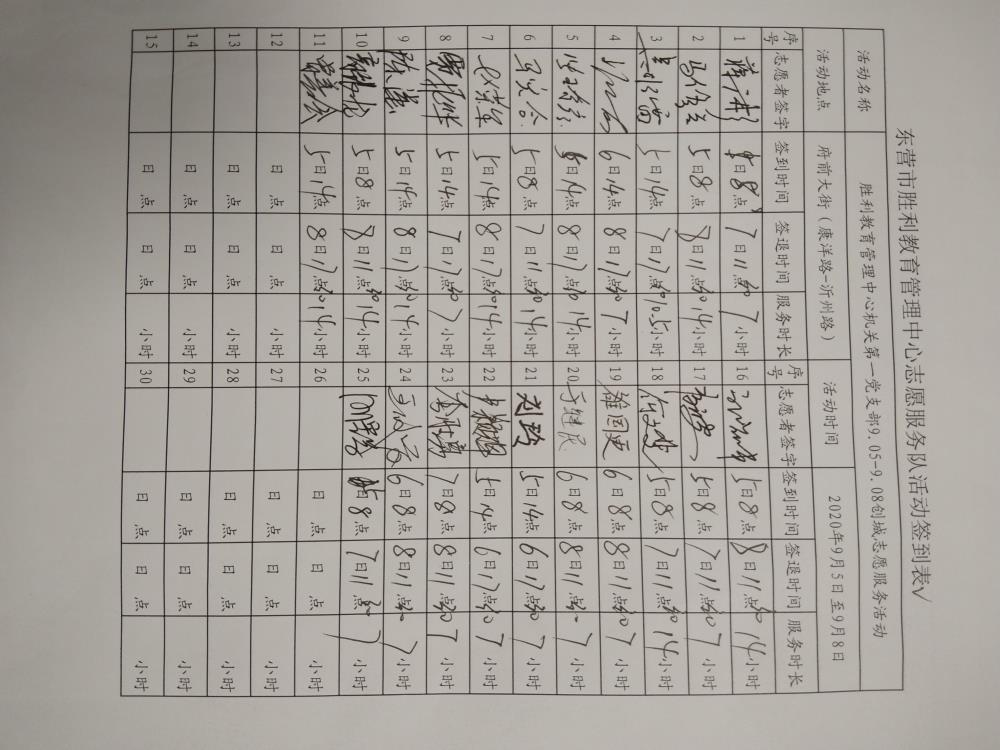 东营市胜利教育管理中心志愿服务队活动签到表√
活动名称 胜利教育管理中心机关第一党支部9.05-9.08创城志愿服务活动
活动地点 府前大街（康洋路-沂州路） 活动时间 2020年9月5日至9月8日
序号 志愿者签字 签到时间 签退时间 服务时长 序号 志愿者签字 签到时间 签退时间 服务时长
1 5日8点 7日11点30 7小时 16 5日8点 8日11点30 14小时
2 5日8点 8日11点30 14小时 17 5日8点 7日11点30 7小时
3 5日14点 7日17点30 10.5小时 18 5日8点 7日11点30 14小时
4 6日14点 8日17点30 7小时 19 6日8点 8日11点30 7小时
5 5日14点 8日17点30 14小时 20 于继民 6日8点 8日11点30 7小时
6 5日8点 7日11点30 14小时 21 刘 5日14点 6日17点30 7小时
7 5日14点 8日17点30 14小时 22 5日14点 6日17点30 7小时
8 5日14点 7日17点30 7小时 23 7日8点 8日11点30 7小时
9 陈涛 5日14点 8日17点30 14小时 24 6日8点 8日11点30 7小时
10 5日8点 8日11点30 14小时 25 5日8点 7日11点30 7小时
11 5日14点 8日17点30 14小时 26 日 点 日 点 小时
12 日 点 日 点 小时 27 日 点 日 点 小时
13 日 点 日 点 小时 28 日 点 日 点 小时
14 日 点 日 点 小时 29 日 点 日 点 小时
15 日 点 日 点 小时 30 日 点 日 点 小时